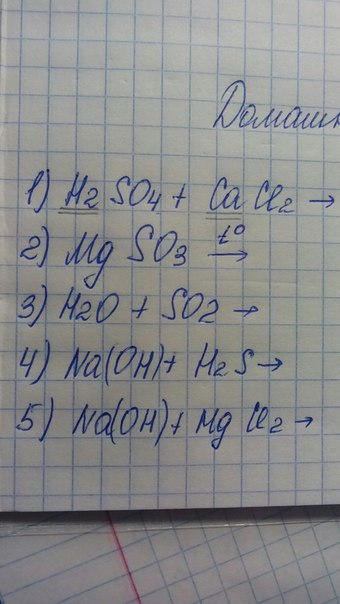 Домашн
1) H2 SO4 + Ca Cl2 →
2) Mg SO3 t° →
3) H2O + SO2 →
4) Na(OH)+ H2S →
5) Na(OH)+ Mg Cl2 →